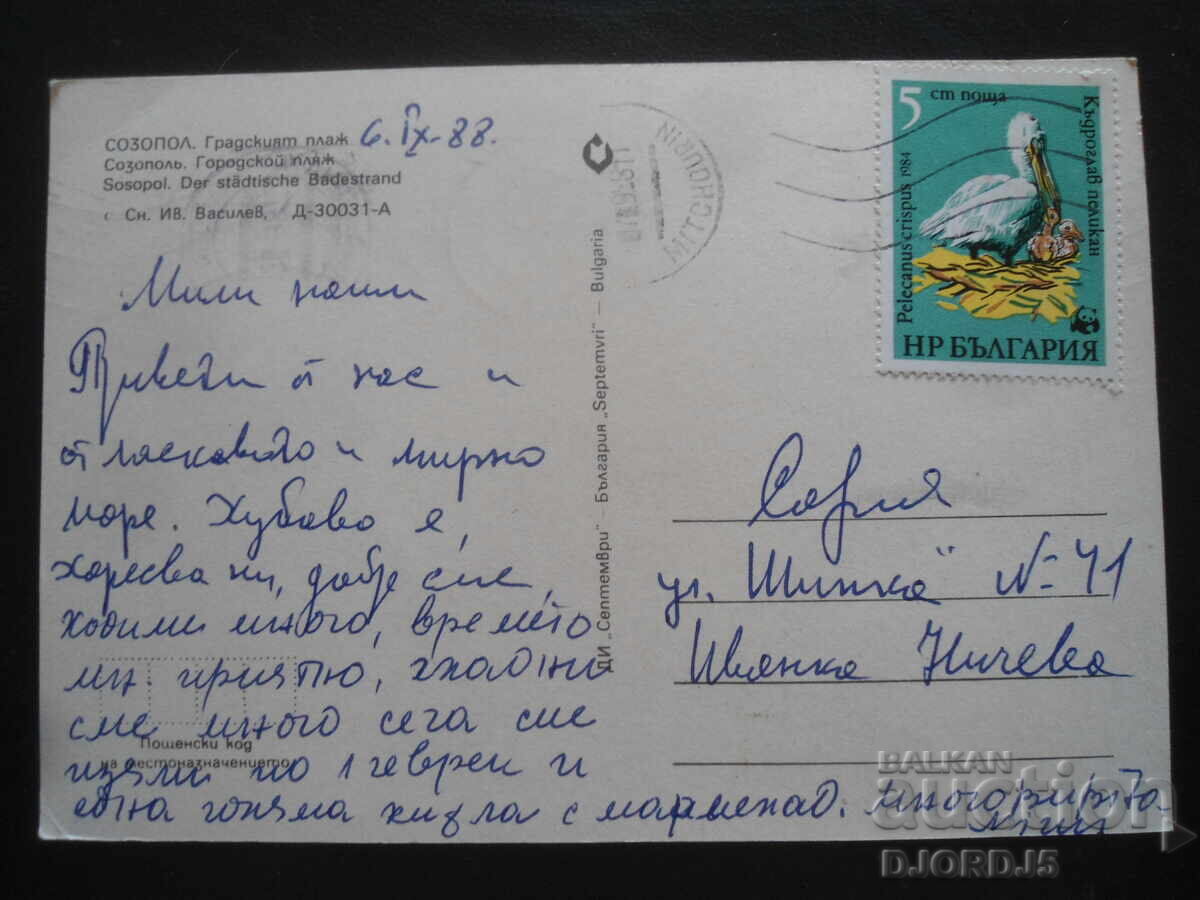 СОЗОПОЛ. Градският плаж
Созополь. Городской пляж
Sosopol. Der städtische Badestrand
Сн. Ив. Василев, Д-30031-А
6. IX-88.
Мили наши
Привети от нас и
от ласкавото и мирно
море. Хубаво е,
харесва ни, добре сме,
ходими много, времето
мн. приятно,
сме много сега сме
изяли по 1 геврек и
една голяма кифла с мармелад. много
Пощенски код
на местоназначението
ДИ „Септември" — България „Septemvri" — Bulgaria
MITCHOURIN
5 ст поща
Къдроглав пеликан
Pelecanus crispus 1984
НР БЪЛГАРИЯ
София
ул. Шипка" № 41
Иванка Ничева
BALKAN
auction
DJORDJ5